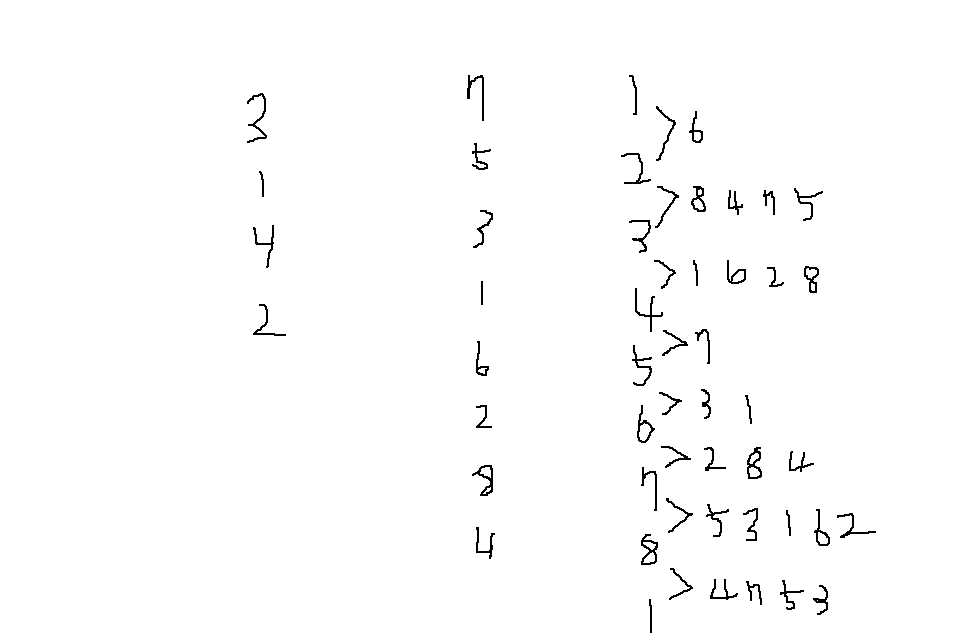 3
1
4
2
7
5
3
1
6
2
8
4
1
> 6
2
> 8 4 7 5
3
> 1 6 2 8
4
> 7
5
> 3 1
6
> 2 8 4
7
> 5 3 1 6 2
8
> 4 7 5 3
1